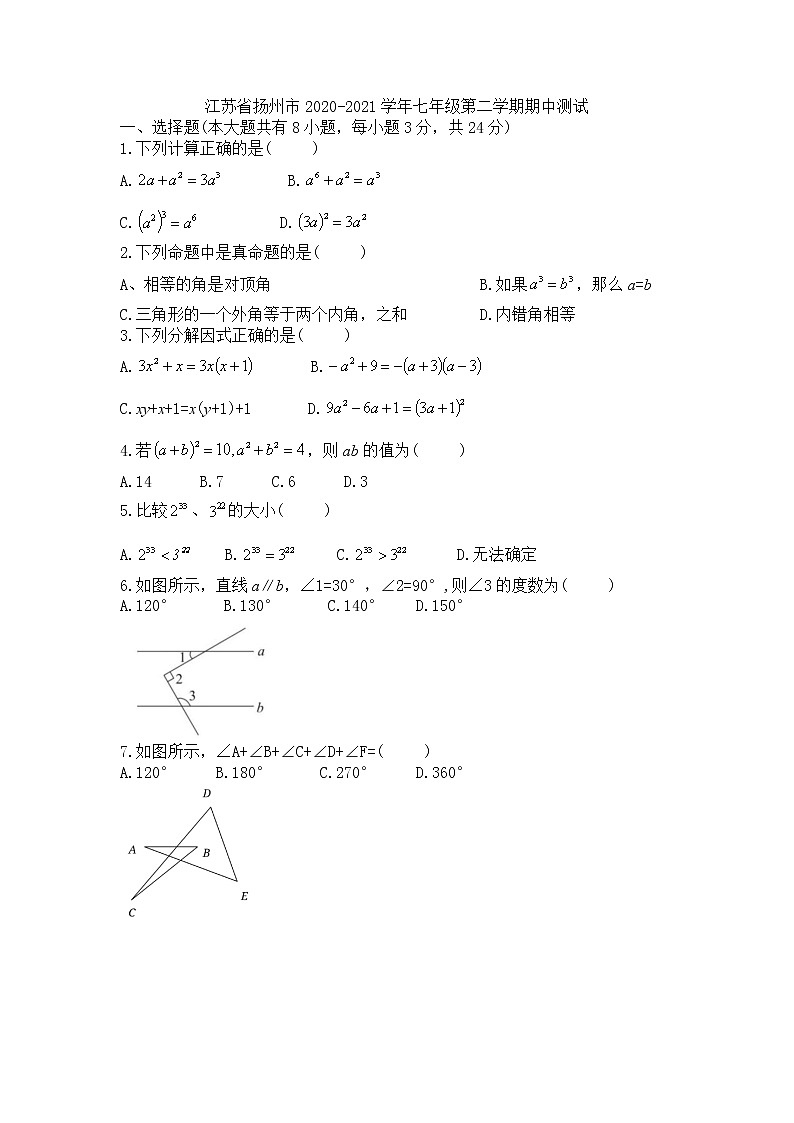 江苏省扬州市2020-2021学年七年级第二学期期中测试
一、选择题(本大题共有8小题，每小题3分，共24分)
1.下列计算正确的是(    )
A.2a+a²=3a³ B.a⁶+a²=a³
C.(a²)³=a⁶ D.(3a)²=3a²
2.下列命题中是真命题的是(    )
A、相等的角是对顶角 B.如果a³=b³，那么a=b
C.三角形的一个外角等于两个内角，之和 D.内错角相等
3.下列分解因式正确的是(    )
A.3x²+x=3x(x+1) B.-a²+9=-(a+3)(a-3)
C.xy+x+1=x(y+1)+1 D.9a²-6a+1=(3a+1)²
4.若(a+b)²=10,a²+b²=4，则ab的值为(    )
A.14 B.7 C.6 D.3
5.比较2³³、3²²的大小(    )
A.2³³<3²² B.2³³=3²² C.2³³>3²² D.无法确定
6.如图所示，直线a∥b，∠1=30°，∠2=90°,则∠3的度数为(    )
A.120° B.130° C.140° D.150°
1 a
2
3
b
7.如图所示，∠A+∠B+∠C+∠D+∠F=(    )
A.120° B.180° C.270° D.360°
D
A B
E
C